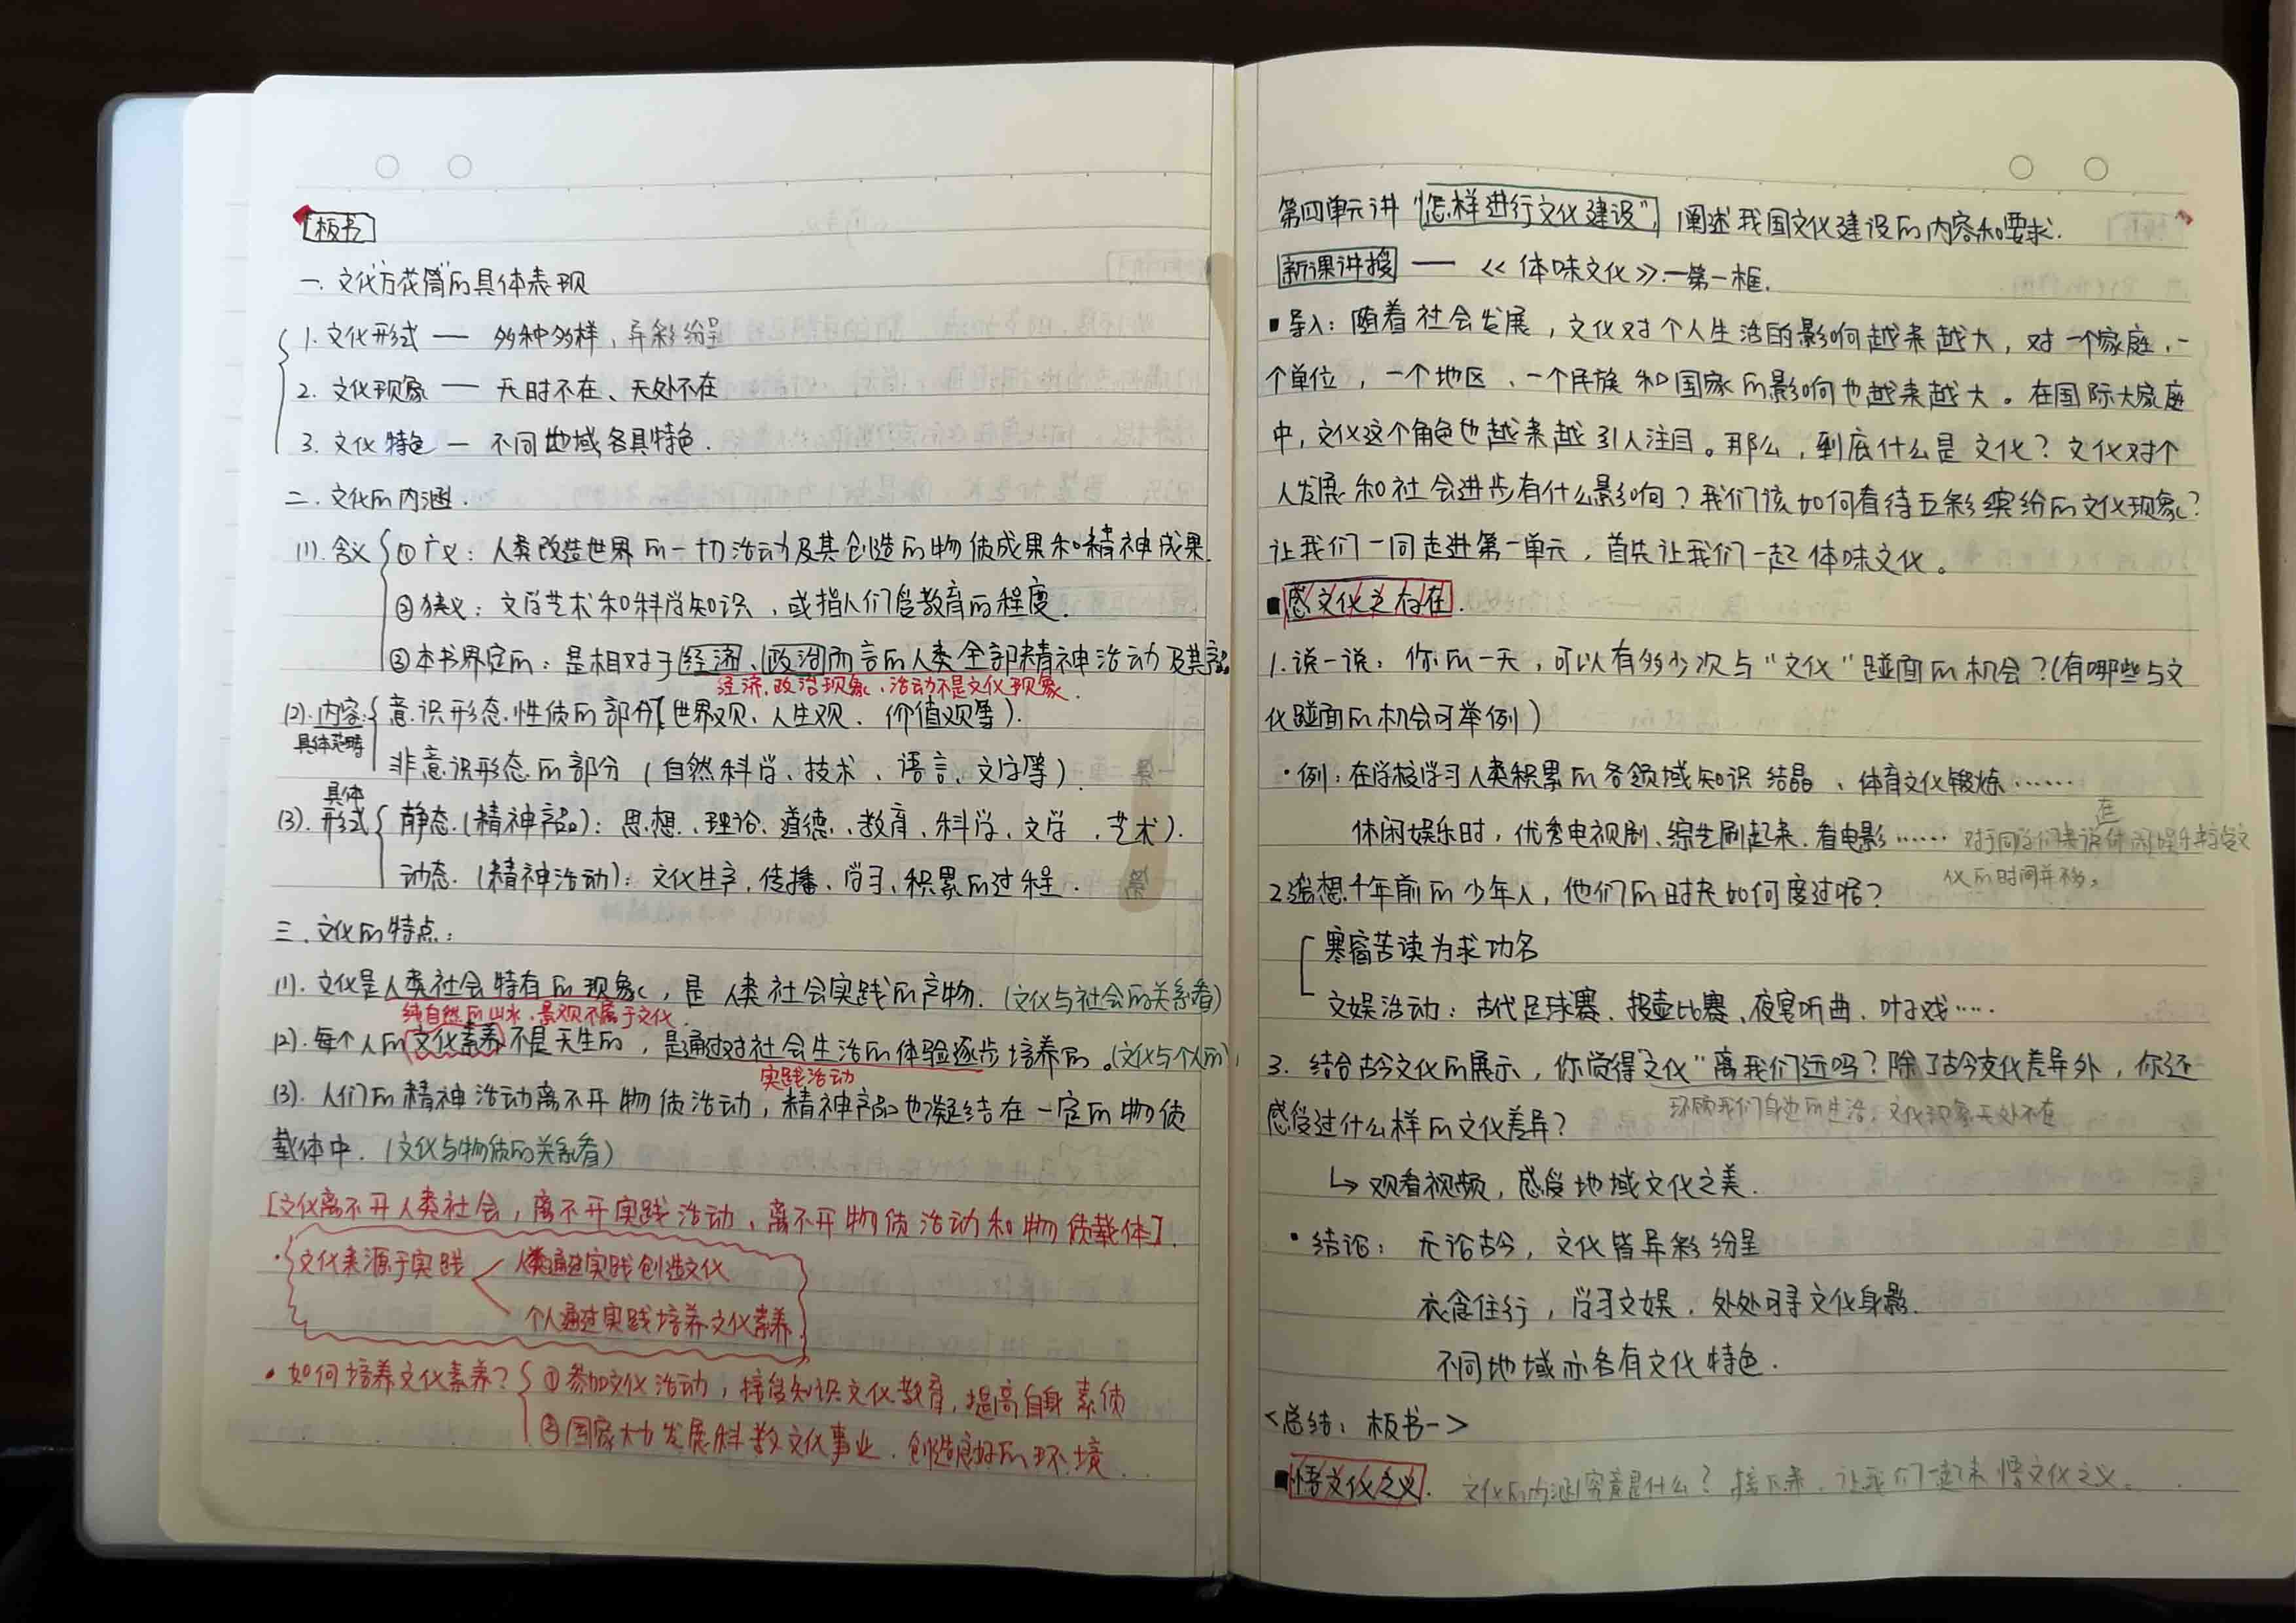 板书
一. 文化"万花筒"的具体表现
1. 文化形式 — 多种多样, 异彩纷呈
2. 文化现象 — 无时不在、无处不在
3. 文化特色 — 不同地域,各具特色.
二. 文化的内涵.
(1). 含义 ①广义: 人类改造世界的一切活动及其创造的物质成果和精神成果.
②狭义: 文学艺术和科学知识, 或指人们受教育的程度.
③本书界定的: 是相对于经济、政治而言的人类全部精神活动及其产品
经济.政治现象、活动不是文化现象.
(2). 内容: 意识形态性质的部分(世界观、人生观、价值观等).
具体范畴
非意识形态的部分 (自然科学、技术、语言、文字等)
具体
(3). 形式 静态.(精神产品): 思想、理论、道德、教育、科学、文学、艺术).
动态. (精神活动): 文化生产, 传播、学习、积累的过程.
三. 文化的特点:
(1). 文化是人类社会特有的现象, 是人类社会实践的产物. (文化与社会的关系看)
纯自然的山水、景观不属于文化.
(2). 每个人的文化素养不是天生的, 是通过对社会生活的体验逐步培养的。(文化与个人的)
实践活动
(3). 人们的精神活动离不开物质活动, 精神产品也凝结在一定的物质
载体中. (文化与物质的关系看)
[文化离不开人类社会, 离不开实践活动、离不开物质活动和物质载体].
· 文化来源于实践 人类通过实践创造文化
个人通过实践培养文化素养
· 如何培养文化素养? ①参加文化活动, 接受知识文化教育, 提高自身素质
②国家大力发展科教文化事业. 创造良好的环境
第四单元讲"怎样进行文化建设", 阐述我国文化建设的内容和要求.
新课讲授 — 《体味文化》— 第一框.
■ 导入: 随着社会发展, 文化对个人生活的影响越来越大, 对一个家庭、一
个单位, 一个地区、一个民族和国家的影响也越来越大。在国际大家庭
中, 文化这个角色也越来越引人注目。那么, 到底什么是文化? 文化对个
人发展和社会进步有什么影响? 我们该如何看待五彩缤纷的文化现象?
让我们一同走进第一单元, 首先让我们一起体味文化。
■ 感文化之存在.
1. 说一说: 你的一天, 可以有多少次与"文化"碰面的机会?(有哪些与文
化碰面的机会可举例)
· 例: 在学校学习人类积累的各领域知识结晶、体育文化锻炼……
休闲娱乐时, 优秀电视剧、综艺刷起来. 看电影…… 对于同学们来说在休闲娱乐
化的时间并不多。
2. 遥想千年前的少年人, 他们的时光如何度过呢?
寒窗苦读为求功名
文娱活动: 古代足球赛、投壶比赛、夜宴听曲、叶子戏……
3. 结合古今文化的展示, 你觉得"文化"离我们远吗? 除了古今文化差异外, 你还
环顾我们身边的生活, 文化现象无处不在
感受过什么样的文化差异?
↳ 观看视频, 感受地域文化之美.
· 结论: 无论古今, 文化皆异彩纷呈
衣食住行, 学习文娱. 处处可寻文化身影.
不同地域亦各有文化特色.
<总结: 板书一>
■ 悟文化之义. 文化的内涵究竟是什么? 接下来, 让我们一起来悟文化之义。